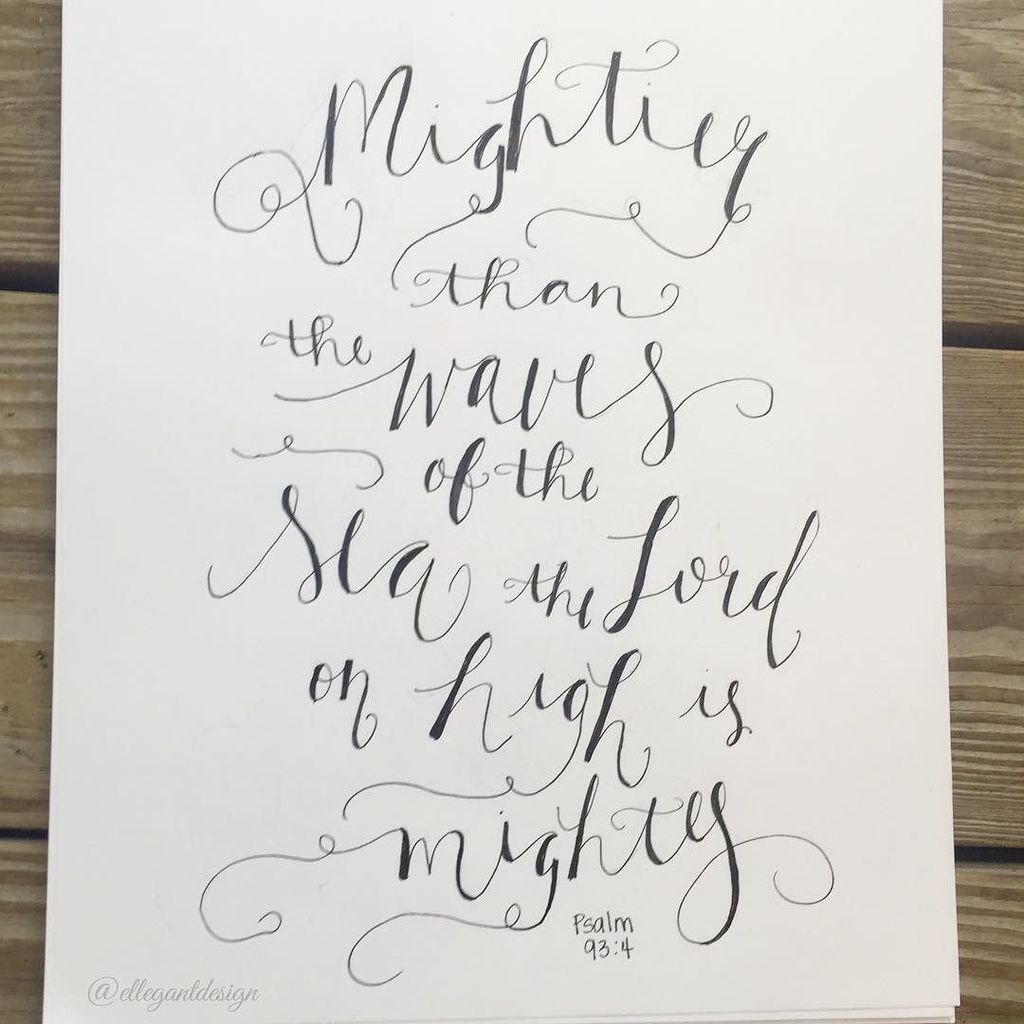 Mightier
than
the waves
of the
Sea the Lord
on high is
mighty
Psalm
93:4
@ellegantdesign